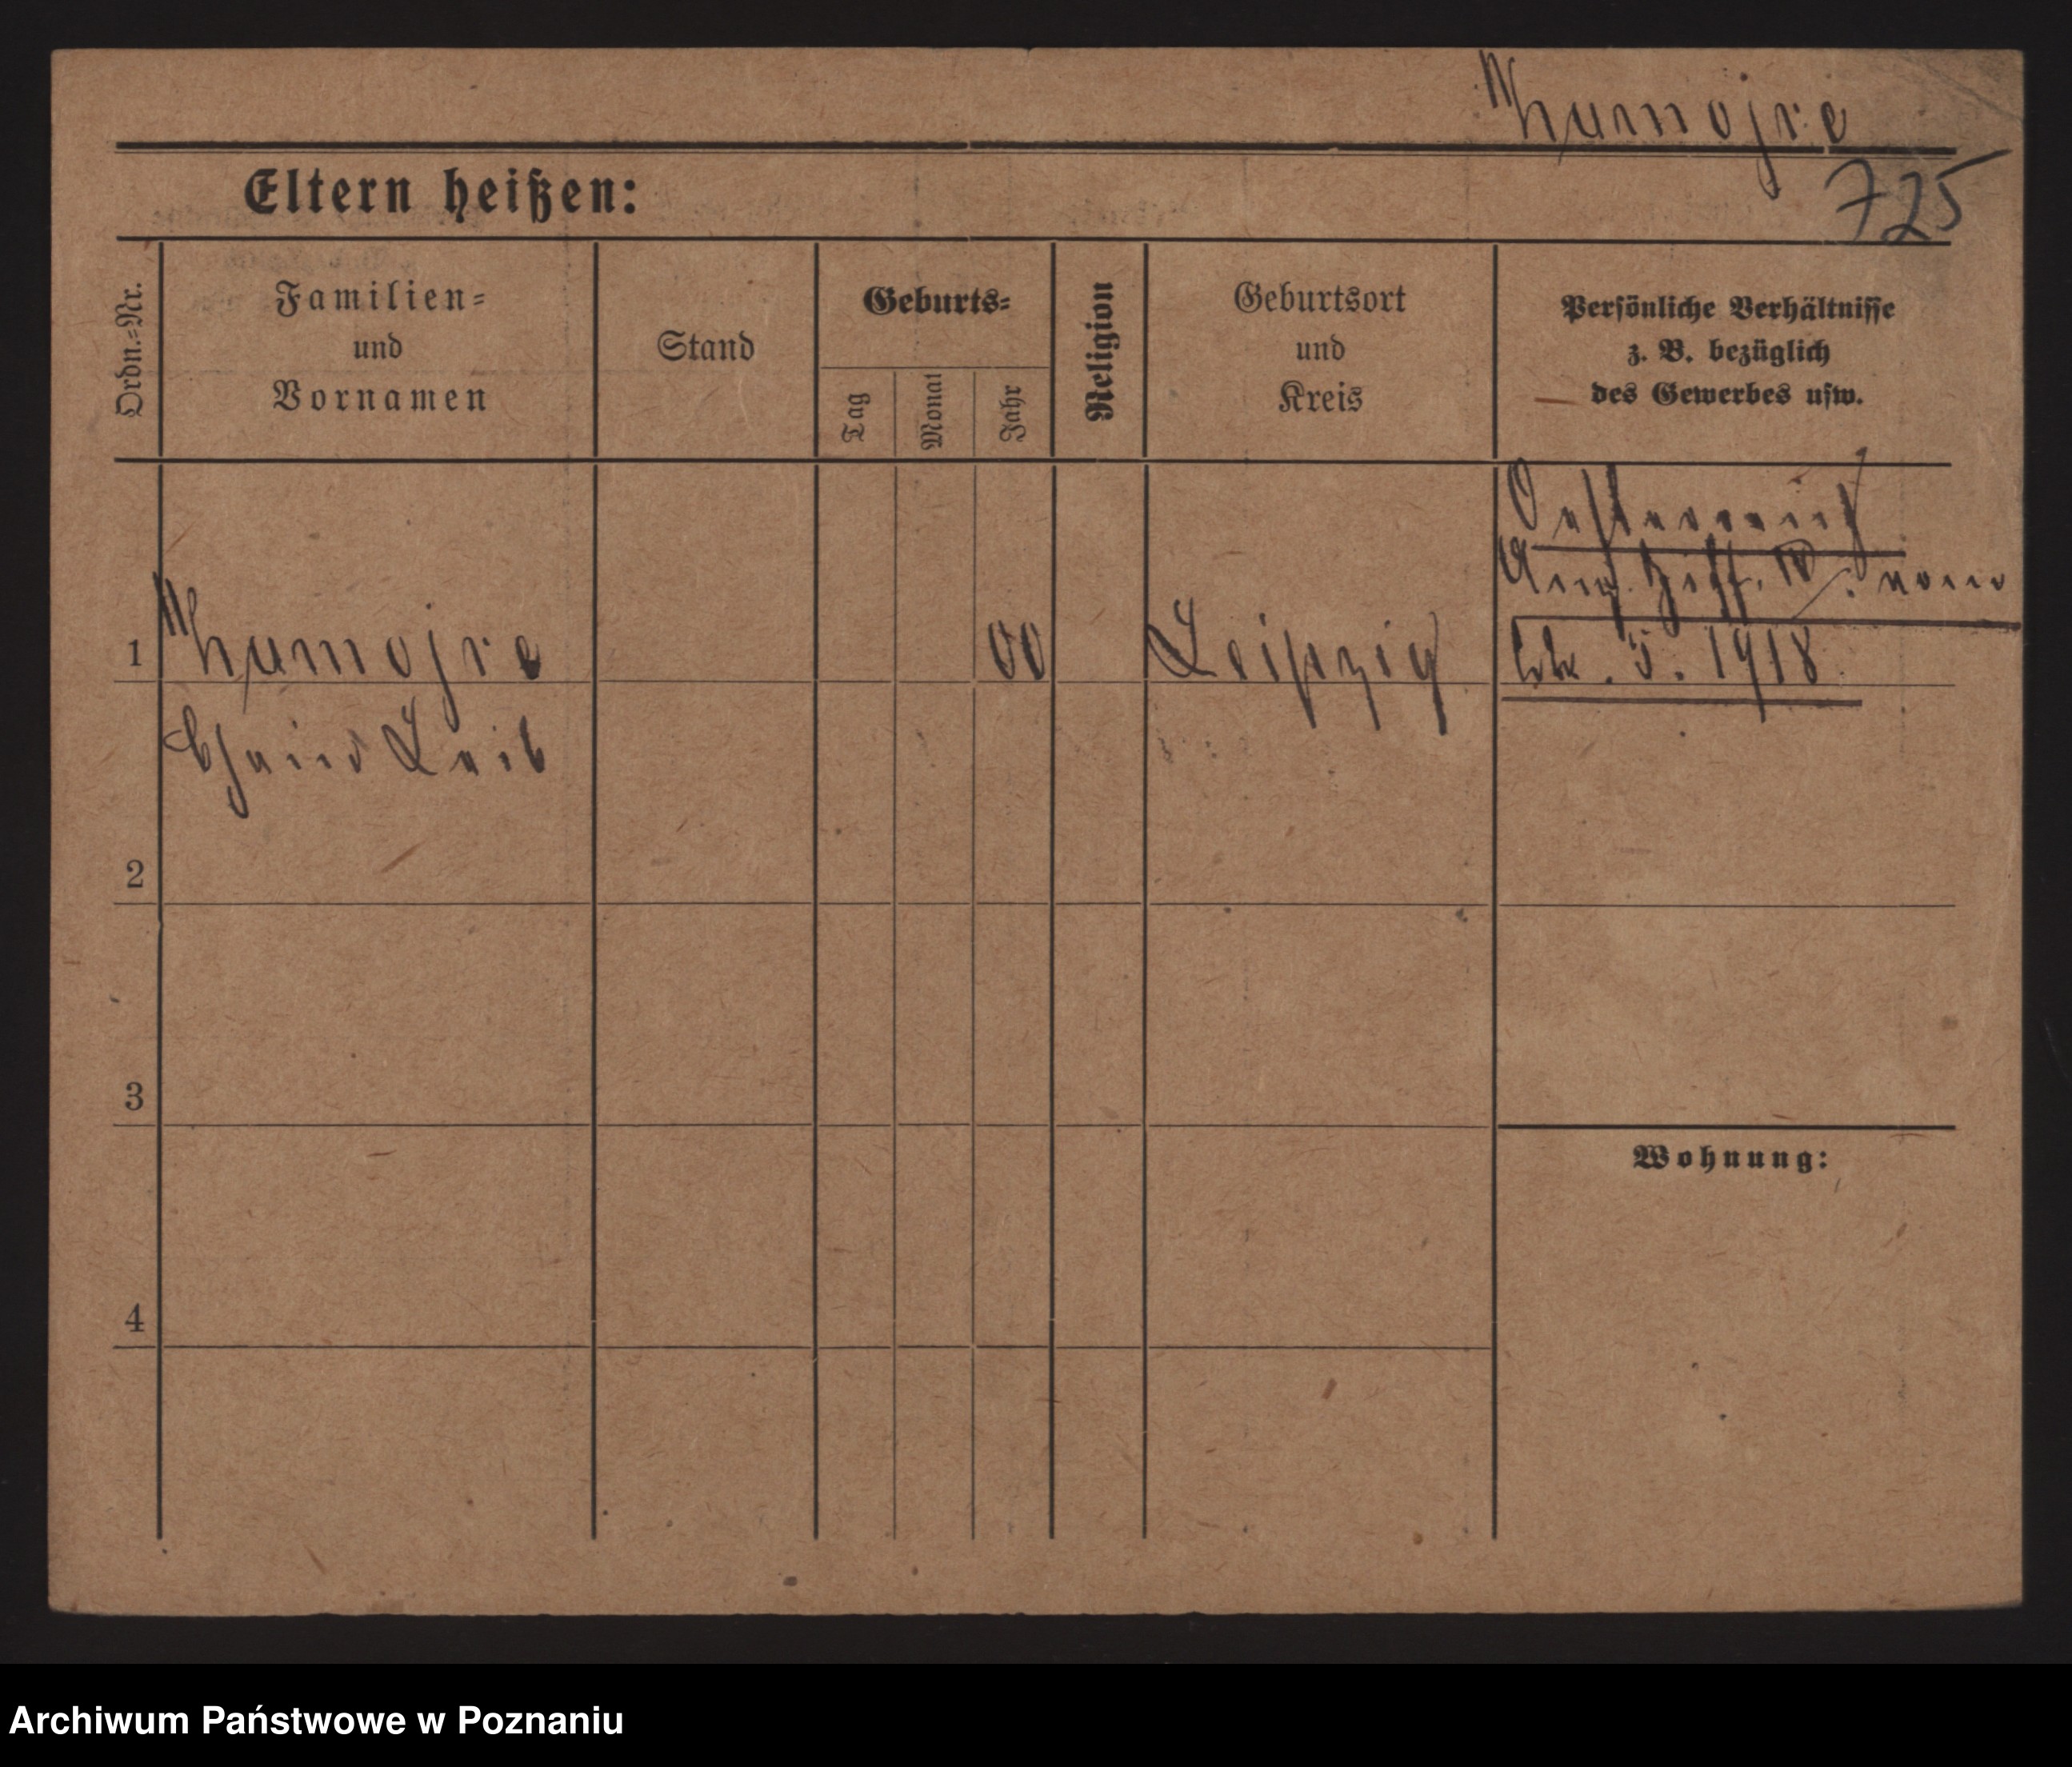 Thumojre
725
Eltern heißen:
Ordn.=Nr.
Familien=
und
Vornamen
Stand
Geburts=
Tag
Monat
Jahr
Religion
Geburtsort
und
Kreis
Persönliche Verhältnisse
z. B. bezüglich
des Gewerbes usw.
Oesterreich
vom
5. 1918
1
Thumojre
00
Leipzig
Chaim Leib
2
3
4
Wohnung:
Archiwum Państwowe w Poznaniu